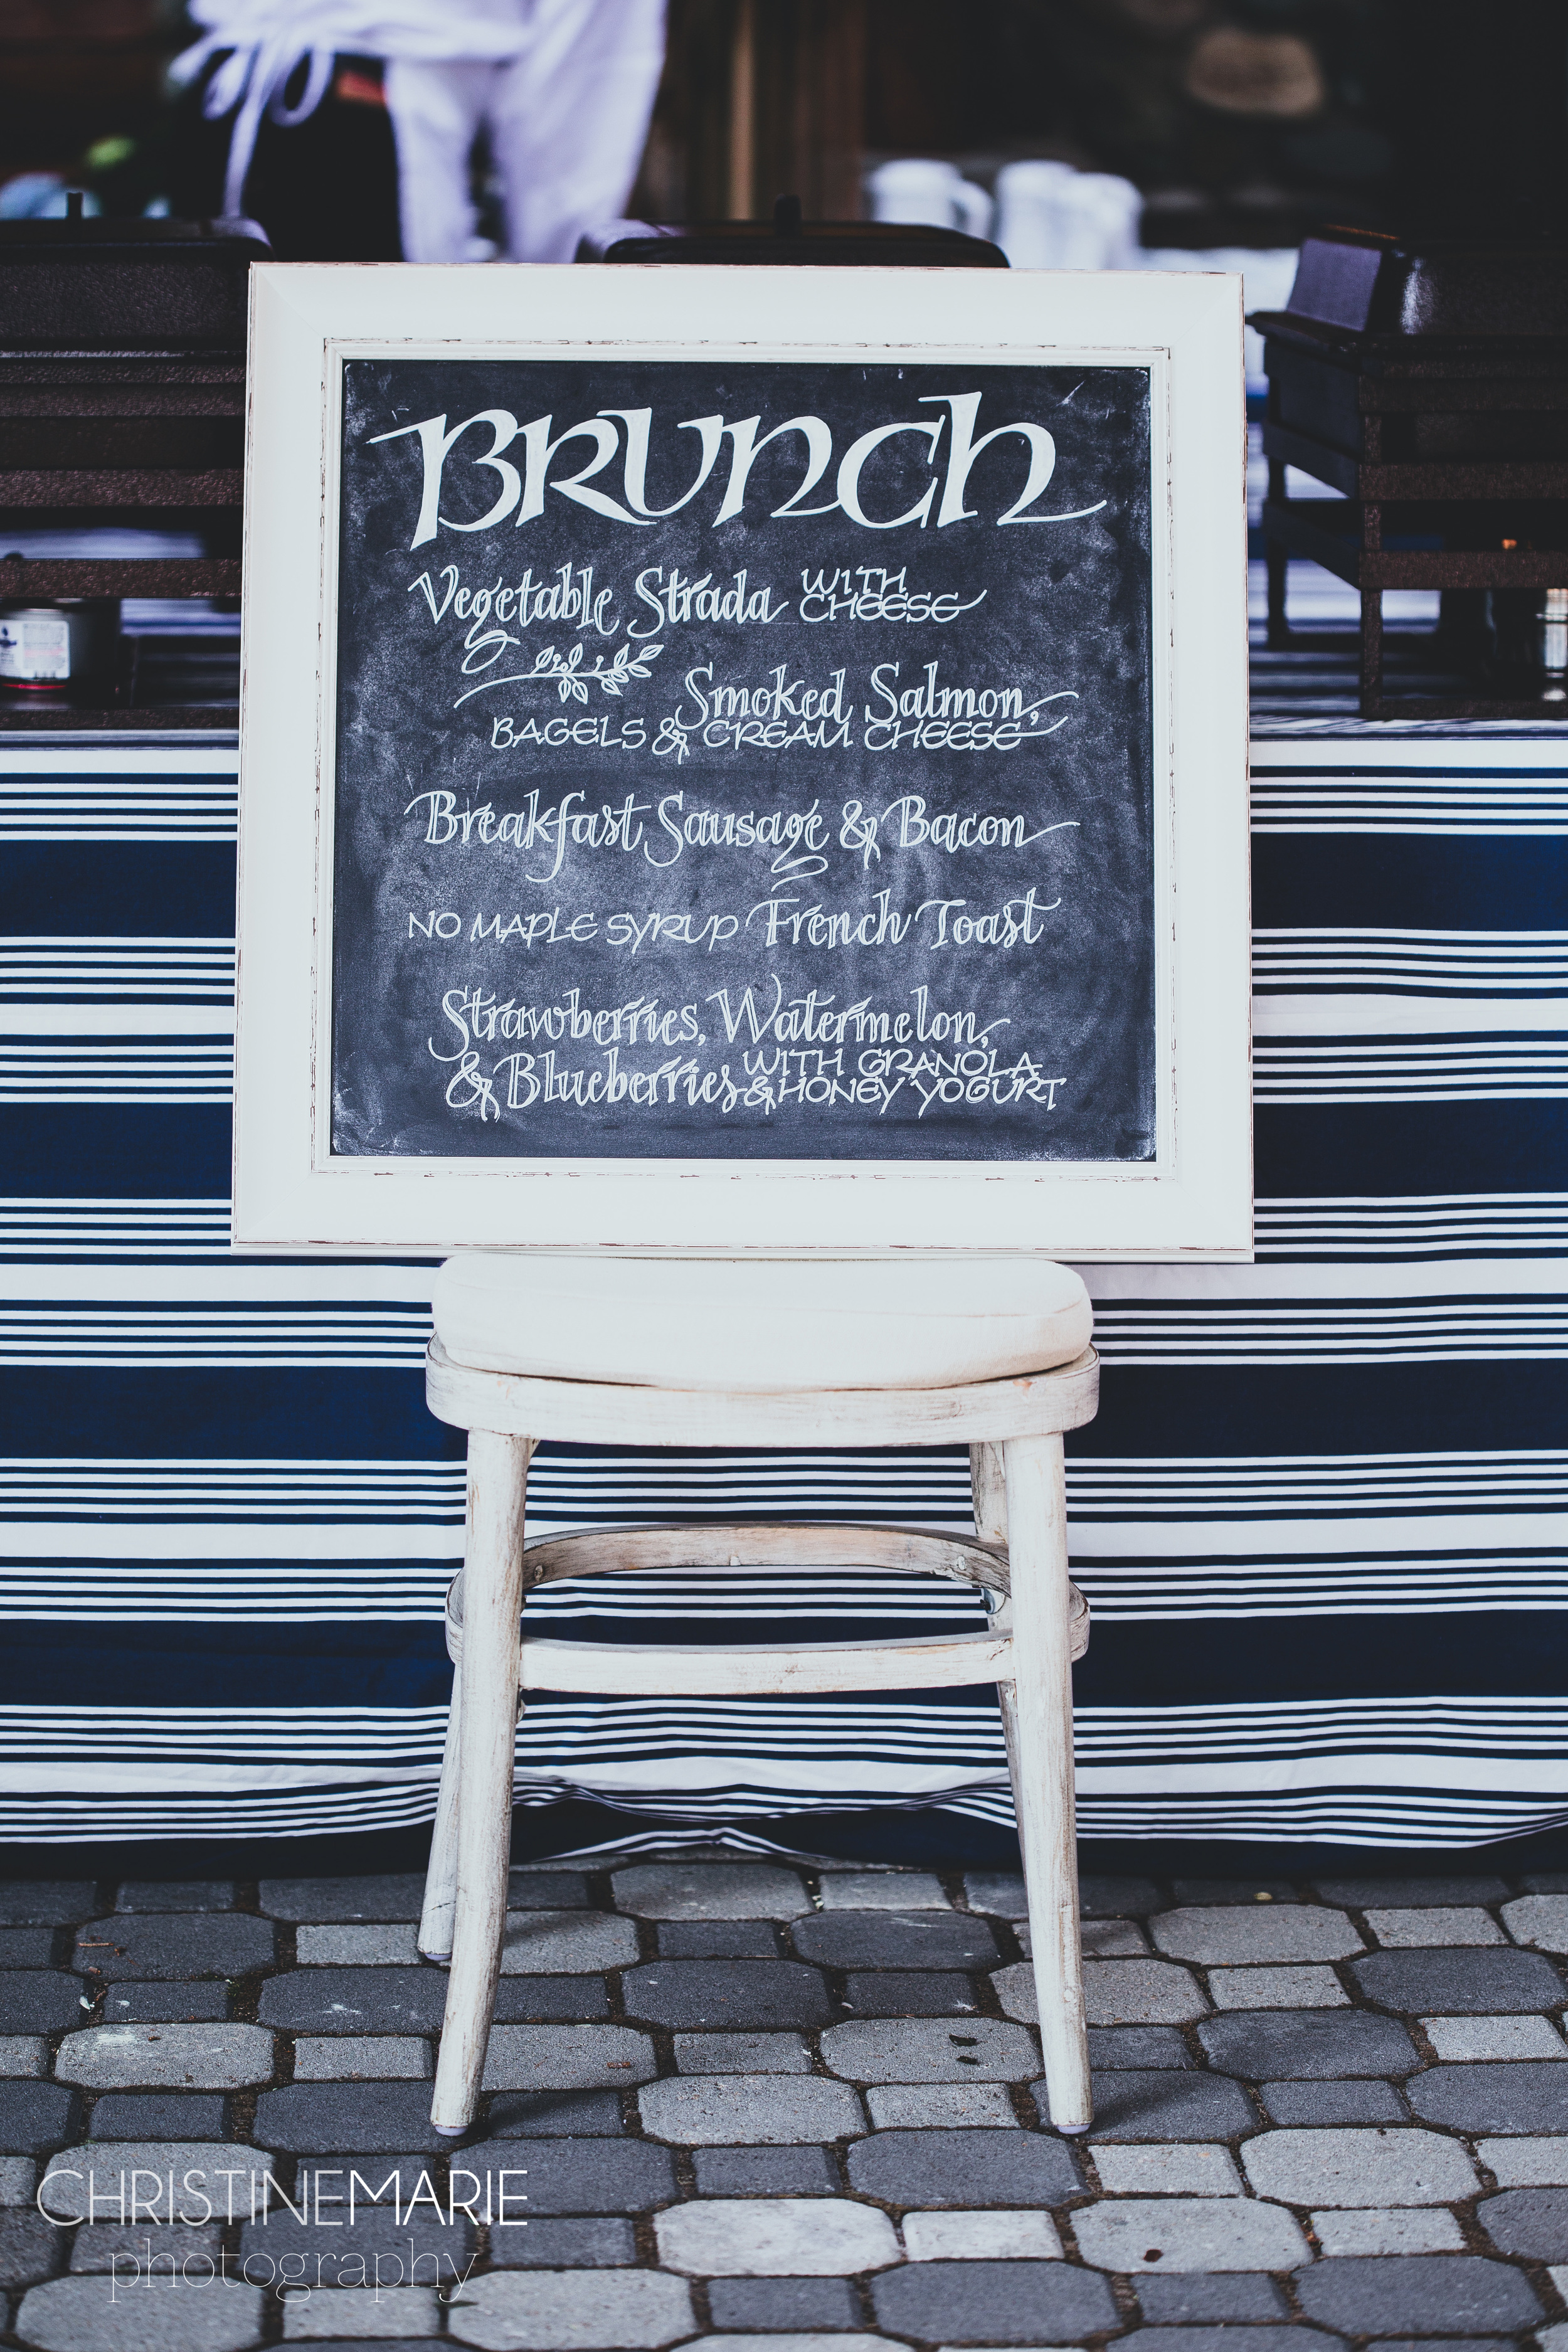 BRUNCH
Vegetable Strada WITH CHEESE
Smoked Salmon,
BAGELS & CREAM CHEESE
Breakfast Sausage & Bacon
NO MAPLE SYRUP French Toast
Strawberries, Watermelon,
& Blueberries WITH GRANOLA & HONEY YOGURT
CHRISTINEMARIE
photography